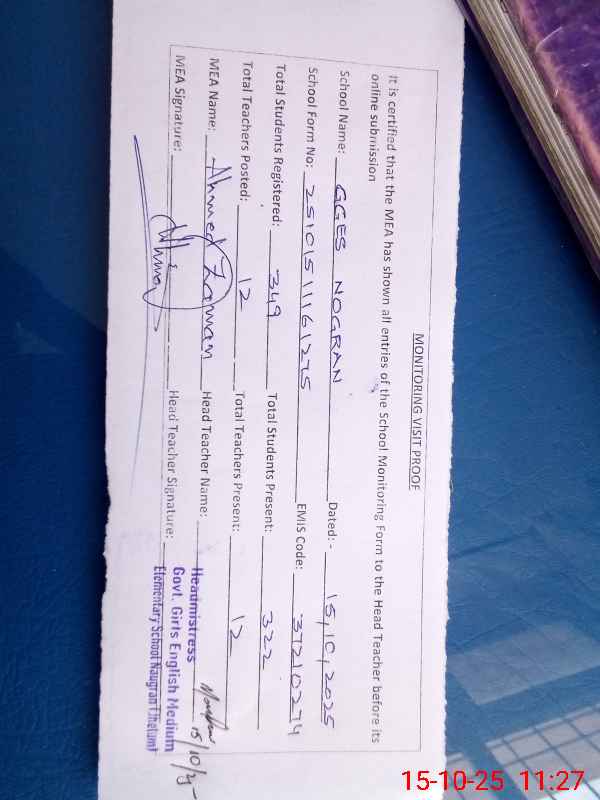 MONITORING VISIT PROOF
It is certified that the MEA has shown all entries of the School Monitoring Form to the Head Teacher before its
online submission
School Name: GGES NOGRAN Dated:- 15,10,2025
School Form No: 251015111161275 EMIS Code: 37210274
Total Students Registered: 349 Total Students Present: 322
Total Teachers Posted: 12 Total Teachers Present: 12
MEA Name: Ahmed Zaman Head Teacher Name:
MEA Signature: Head Teacher Signature:
15/10/25
Headmistress
Govt. Girls English Medium
Elementary School Naugran (Jhelum)
15-10-25 11:27